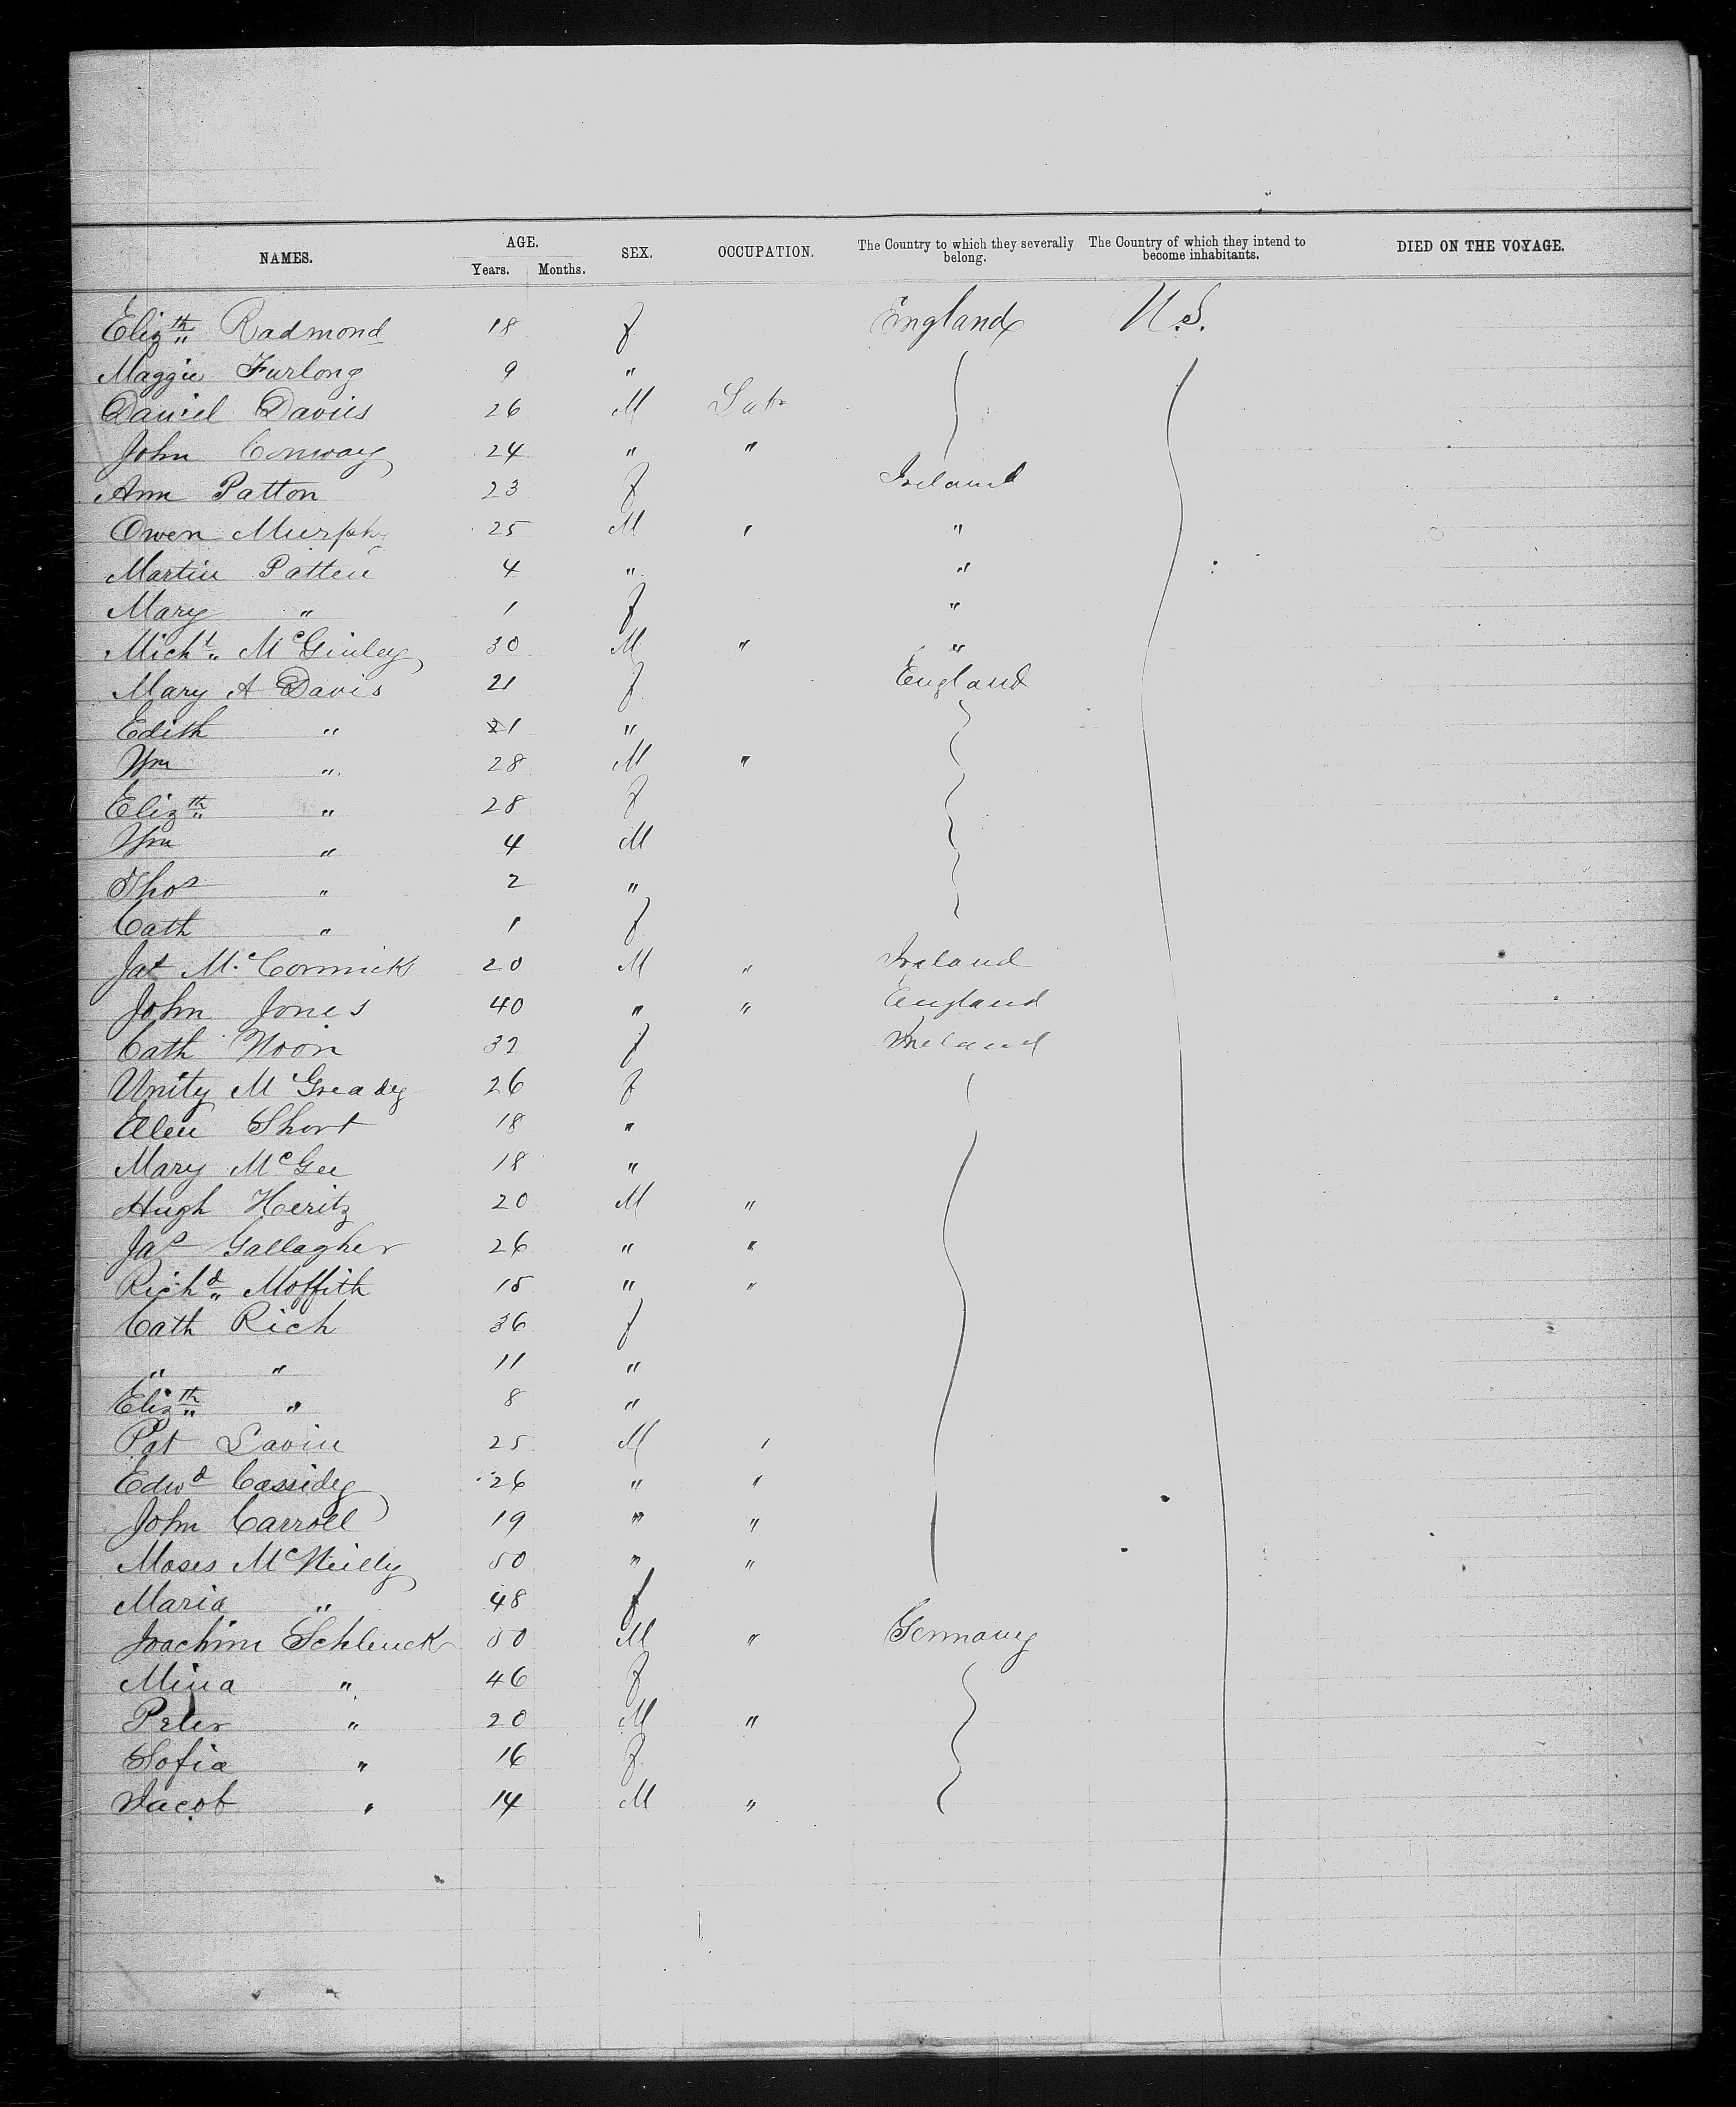 NAMES. AGE. SEX. OCCUPATION. The Country to which they severally belong. The Country of which they intend to become inhabitants. DIED ON THE VOYAGE.
Years. Months.
Elizth Radmond 18 f England U.S.
Maggie Furlong 9 "
Daniel Davies 26 M Lab
John Conway 24 " "
Ann Patton 23 f Ireland
Owen Murphy 25 M " "
Martin Patten 4 " "
Mary " 1 f "
Michl McGinley 30 M " "
Mary A Davis 21 f England
Edith " 1 "
Wm " 28 M "
Elizth " 28 f
Wm " 4 M
Thos " 2 "
Cath " 1 f
Jas McCormick 20 M " Ireland
John Jones 40 " " England
Cath Noon 32 f Ireland
Unity McGready 26 f
Elen Short 18 "
Mary McGee 18 "
Hugh Heritz 20 M "
Jas Gallagher 26 " "
Richd Moffith 15 " "
Cath Rich 36 f
" " 11 "
Elizth " 8 "
Pat Lavin 25 M "
Edwd Cassidy 26 " "
John Carroll 19 " "
Moses McNeilly 50 " "
Maria " 48 f
Joachim Schluck 50 M " Germany
Mina " 46 f
Peter " 20 M "
Sofia " 16 f
Jacob " 14 M "